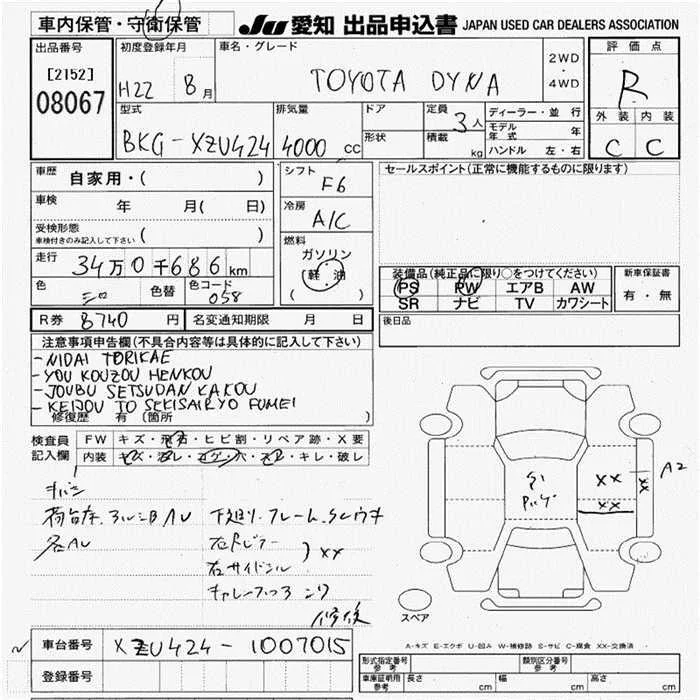 車内保管・守衛保管
JU 愛知 出品申込書 JAPAN USED CAR DEALERS ASSOCIATION
出品番号
[2152]
08067
初度登録年月
H22 8月
車名・グレード
TOYOTA DYNA
2WD
・
4WD
評価点
R
外装 内装
C C
型式
BKG-XZU424
排気量
4000 cc
ドア
形状
定員
3人
積載
kg
ディーラー・並行
モデル年式 年
ハンドル 左・右
車歴 自家用・( )
車検 年 月( 日)
受検形態
車検付きのみ記入して下さい ( )
走行 34万0千686km
色 シロ 色替 色コード 058
シフト
F6
冷房
A/C
燃料
ガソリン
軽油
( )
セールスポイント(正常に機能するものに限ります)
装備品(純正品に限り○をつけてください)
PS PW エアB AW
SR ナビ TV カワシート
新車保証書
有・無
R券 8740 円 名変通知期限 月 日
後日品
注意事項申告欄(不具合内容等は具体的に記入して下さい)
-NIDAI TORIKAE
-YOU KOUZOU HENKOU
-JOUBU SETSUDAN KAKOU
-KEIJOU TO SEKISAIRYO FUMEI
修復歴 有 (箇所 )
検査員記入欄
FW キズ・飛石・ヒビ割・リペア跡・X要
内装 キズ・汚レ・コゲ・穴・スレ・キレ・破レ
各AU
XX
修復
A2
XX
XX
XX
スペア
A-キズ E-エクボ U-凹み W-補修跡 S-サビ C-腐食 XX-交換済
車台番号 XZU424-1007015
登録番号
形式指定番号 参考
類別区分番号 参考
車庫証明用 参考 長さ cm 幅 cm 高さ cm